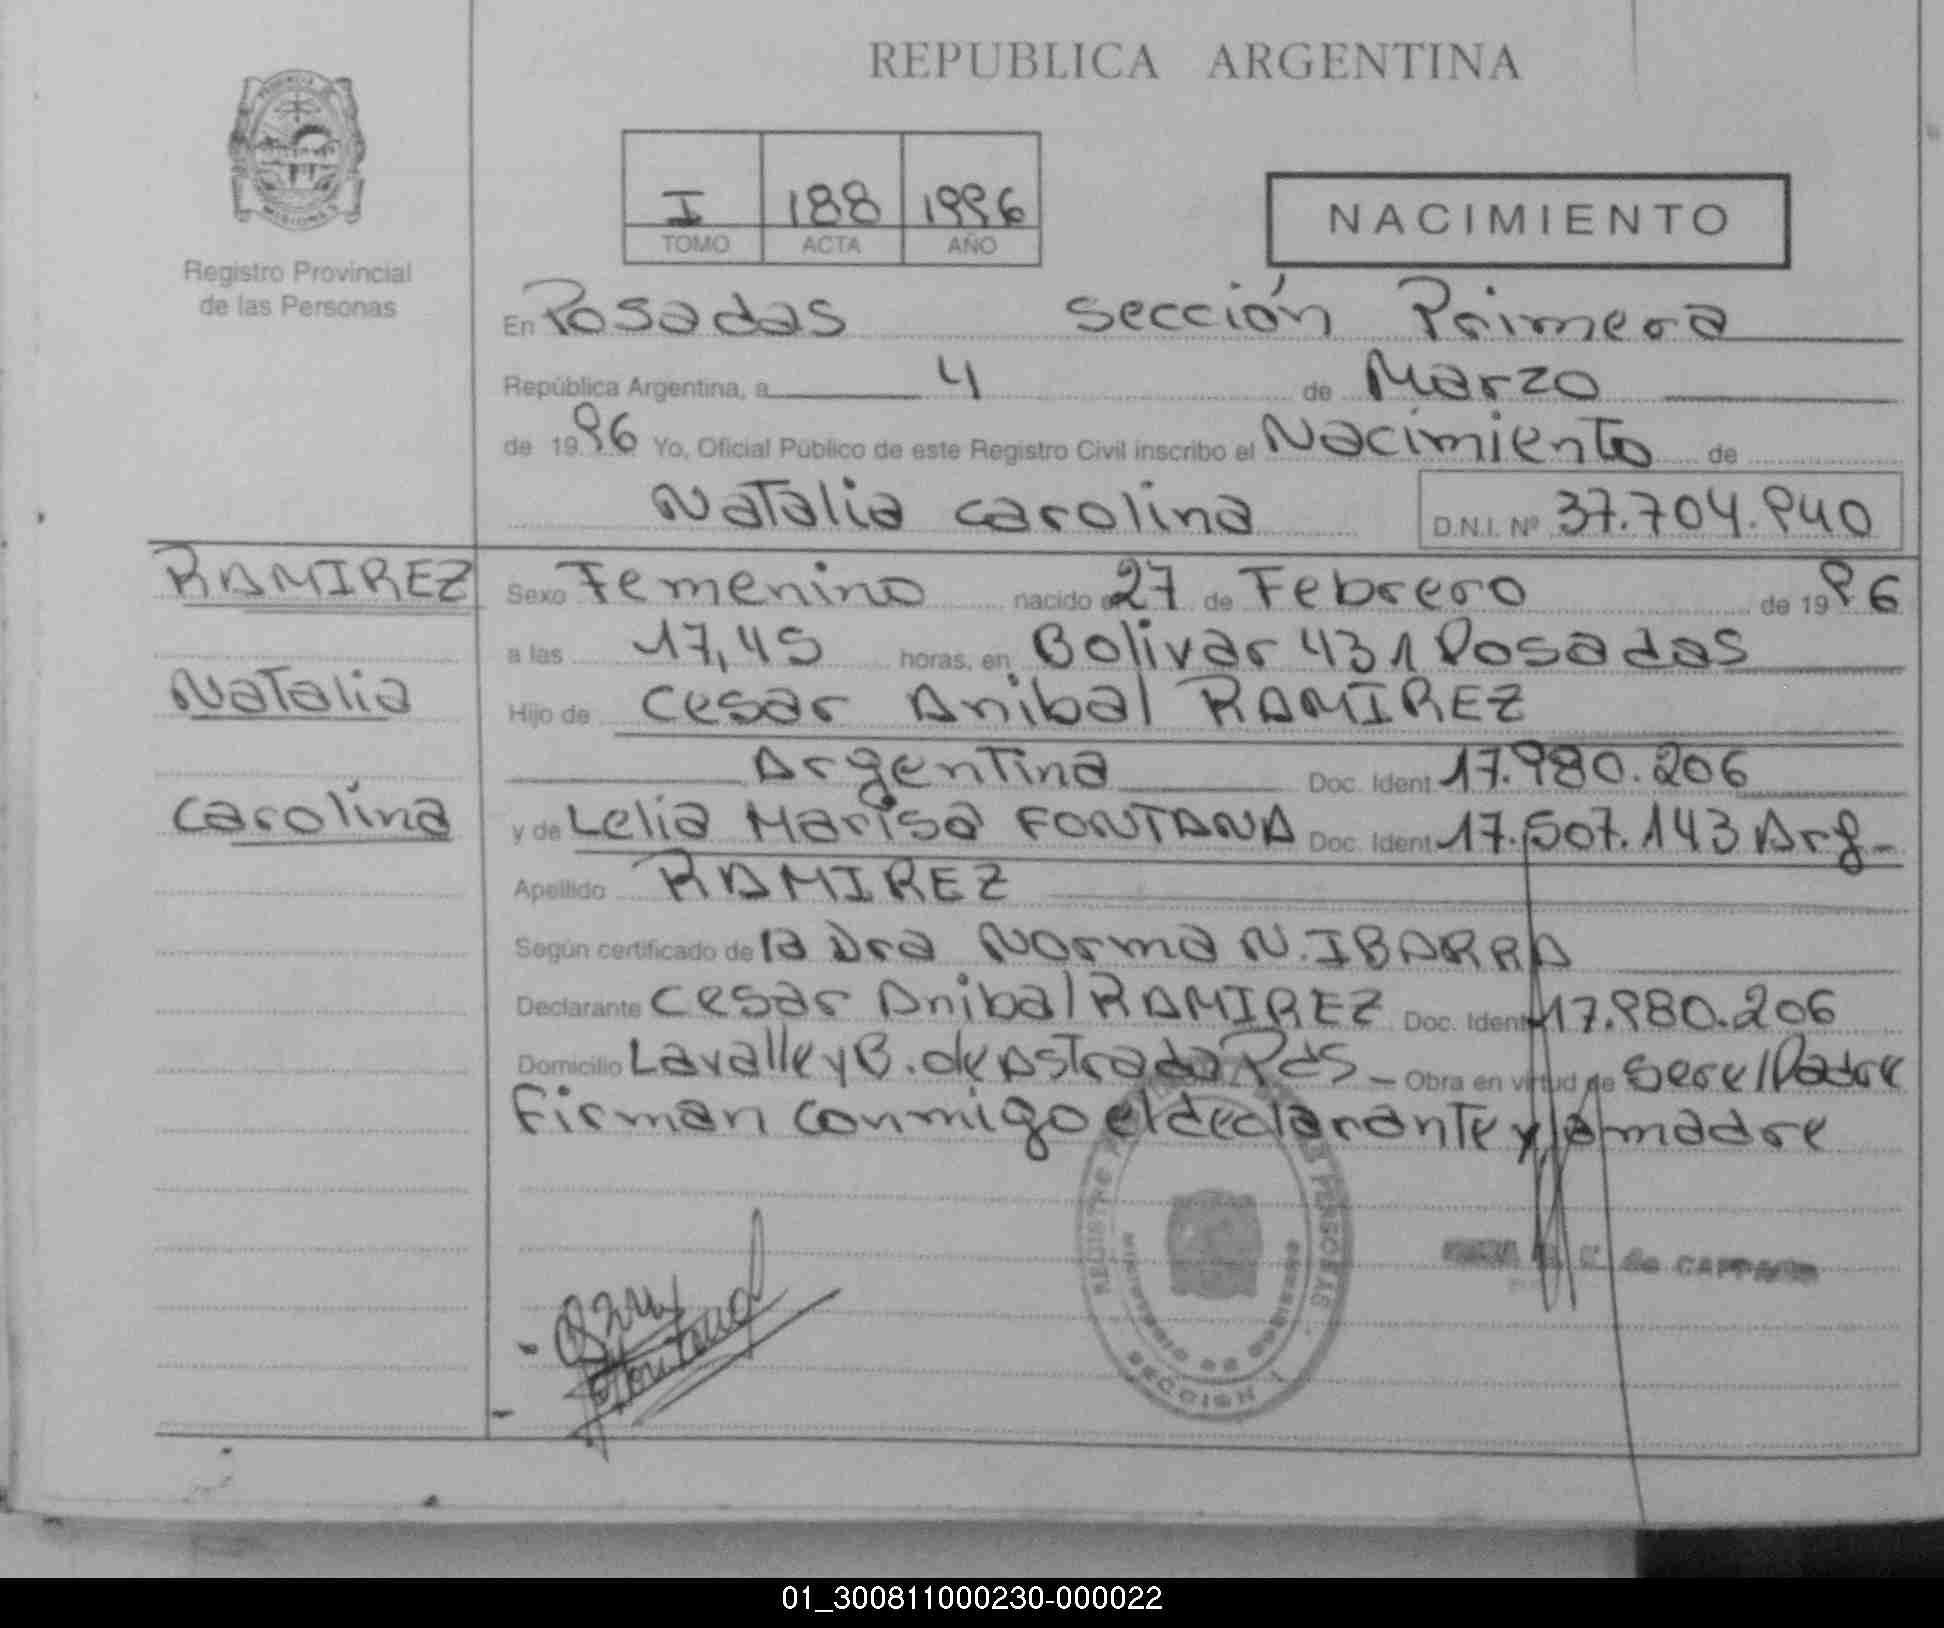 REPUBLICA ARGENTINA
PROVINCIA
MISIONES
Registro Provincial
de las Personas
I 188 1996
TOMO ACTA AÑO
NACIMIENTO
En Posadas sección Primera
República Argentina, a 4 de Marzo
de 1996 Yo, Oficial Público de este Registro Civil inscribo el Nacimiento de
Natalia Carolina D.N.I. Nº 37.704.940
RAMIREZ
Natalia
Carolina
Sexo Femenino nacido 27 de Febrero de 1996
a las 17,45 horas, en Bolivar 431 Posadas
Hijo de Cesar Anibal RAMIREZ
Argentina Doc. Ident 17.980.206
y de Lelia Marisa FONTANA Doc. Ident 17.507.143 Arg-
Apellido RAMIREZ
Según certificado de la Dra Norma N. IBARRA
Declarante Cesar Anibal RAMIREZ Doc. Ident 17.980.206
Domicilio Lavalle y B. de Astrada Pds - Obra en virtud de Ser el Padre
Firman conmigo el declarante y la madre
SECCION 1
de
01_300811000230-000022